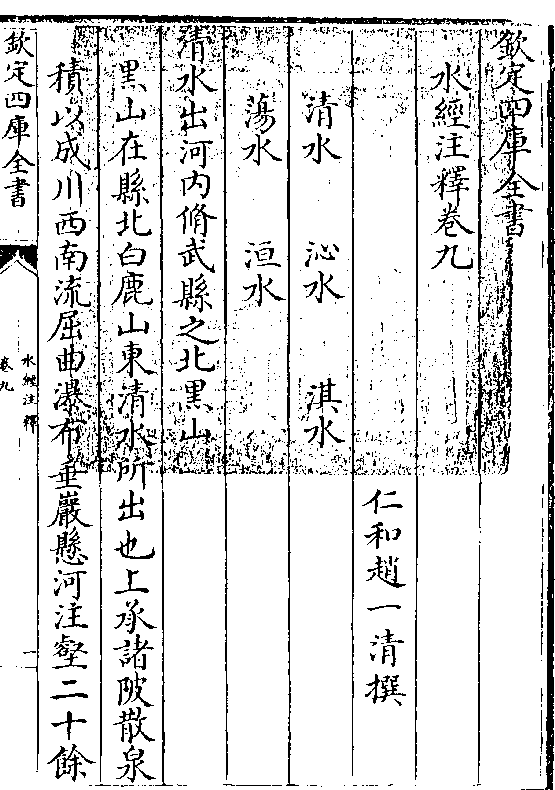 欽定四庫全書
水經注釋卷九
仁和趙一清撰
清水 沁水 淇水
蕩水 洹水
清水出河內脩武縣之北黑山
黑山在縣北白鹿山東清水所出也上承諸陂散泉
積以成川西南流屈曲瀑布垂巖懸河注壑二十餘
欽定四庫全書
水經注釋
卷九
一